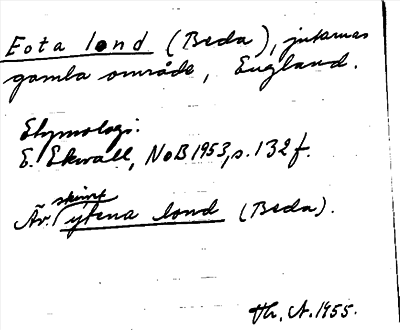 Eota lond (Beda), jutarnas
gamla område, England.
Etymologi:
E. Ekwall, NoB 1953, s. 132 f.
skrivet
Äv. ytena lond (Beda).
Th. A. 1955.